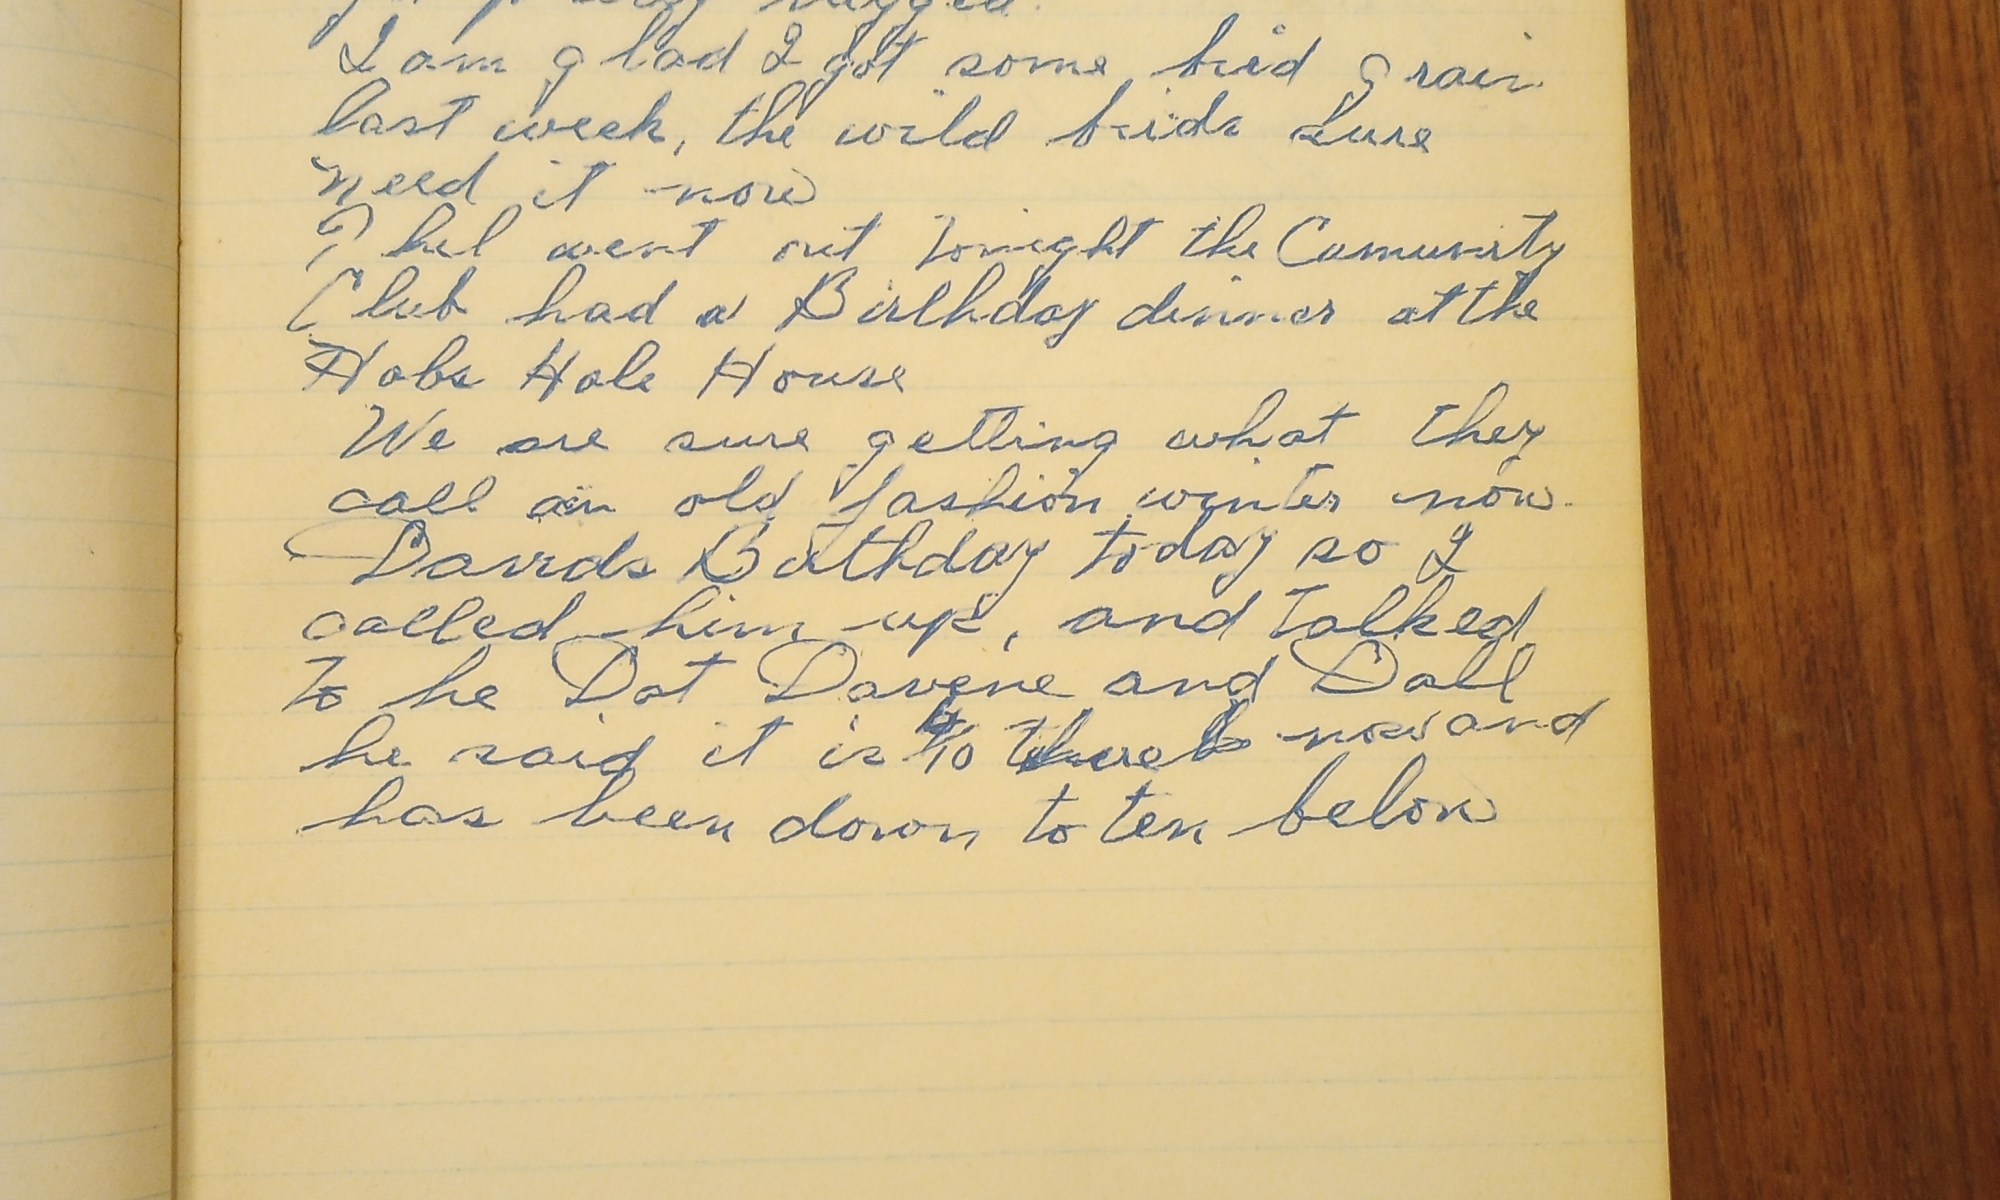 I am glad I got some bird grain
last week, the wild birds sure
need it now
Phil went out tonight the Comunity
Club had a Birthday dinner at the
Hobs Hole House
We are sure getting what they
call an old fashion winter now.
Davids Birthday today so I
called him up, and talked
to he Dot Davene and Doll
he said it is 40 there now and
has been down to ten below